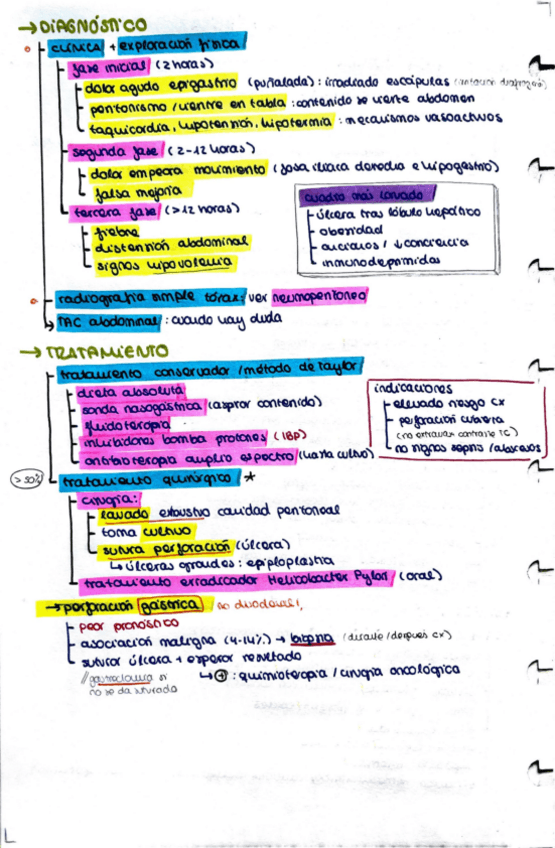 → DIAGNÓSTICO
clínica + exploración física
fase inicial (2 horas)
dolor agudo epigastrio (puñalada): irradiado escápulas (irritación diafragma)
peritonismo / vientre en tabla: contenido se vierte abdomen
taquicardia, hipotensión, hipotermia: mecanismos vasoactivos
segunda fase (2-12 horas)
dolor empeora movimiento (fosa ilíaca derecha e hipogastrio)
falsa mejoría
tercera fase (>12 horas)
fiebre
distensión abdominal
signos hipovolemia
cuadro más larvado
úlcera tras lóbulo hepático
obesidad
ancianos / ↓ conciencia
inmunodeprimidos
radiografía simple tórax: ver neumoperitoneo
TAC abdominal: cuando hay duda
→ TRATAMIENTO
tratamiento conservador / método de Taylor
dieta absoluta
sonda nasogástrica (aspirar contenido)
fluidoterapia
inhibidores bomba protones (IBP)
antibioterapia amplio espectro (hasta cultivo)
indicaciones
elevado riesgo cx
perforación cubierta
(no extravasa contraste TC)
no signos sepsis / abscesos
>50%
tratamiento quirúrgico *
cirugía:
lavado exhaustivo cavidad peritoneal
toma cultivo
sutura perforación (úlcera)
↳ úlceras grandes: epiploplastia
tratamiento erradicador Helicobacter Pylori (oral)
→ perforación gástrica no duodenal!
peor pronóstico
asociación maligna (4-14%) → biopsia (durante/después cx)
suturar úlcera + esperar resultado
↳ ⊕: quimioterapia / cirugía oncológica
// gastrectomía si
no se da suturada